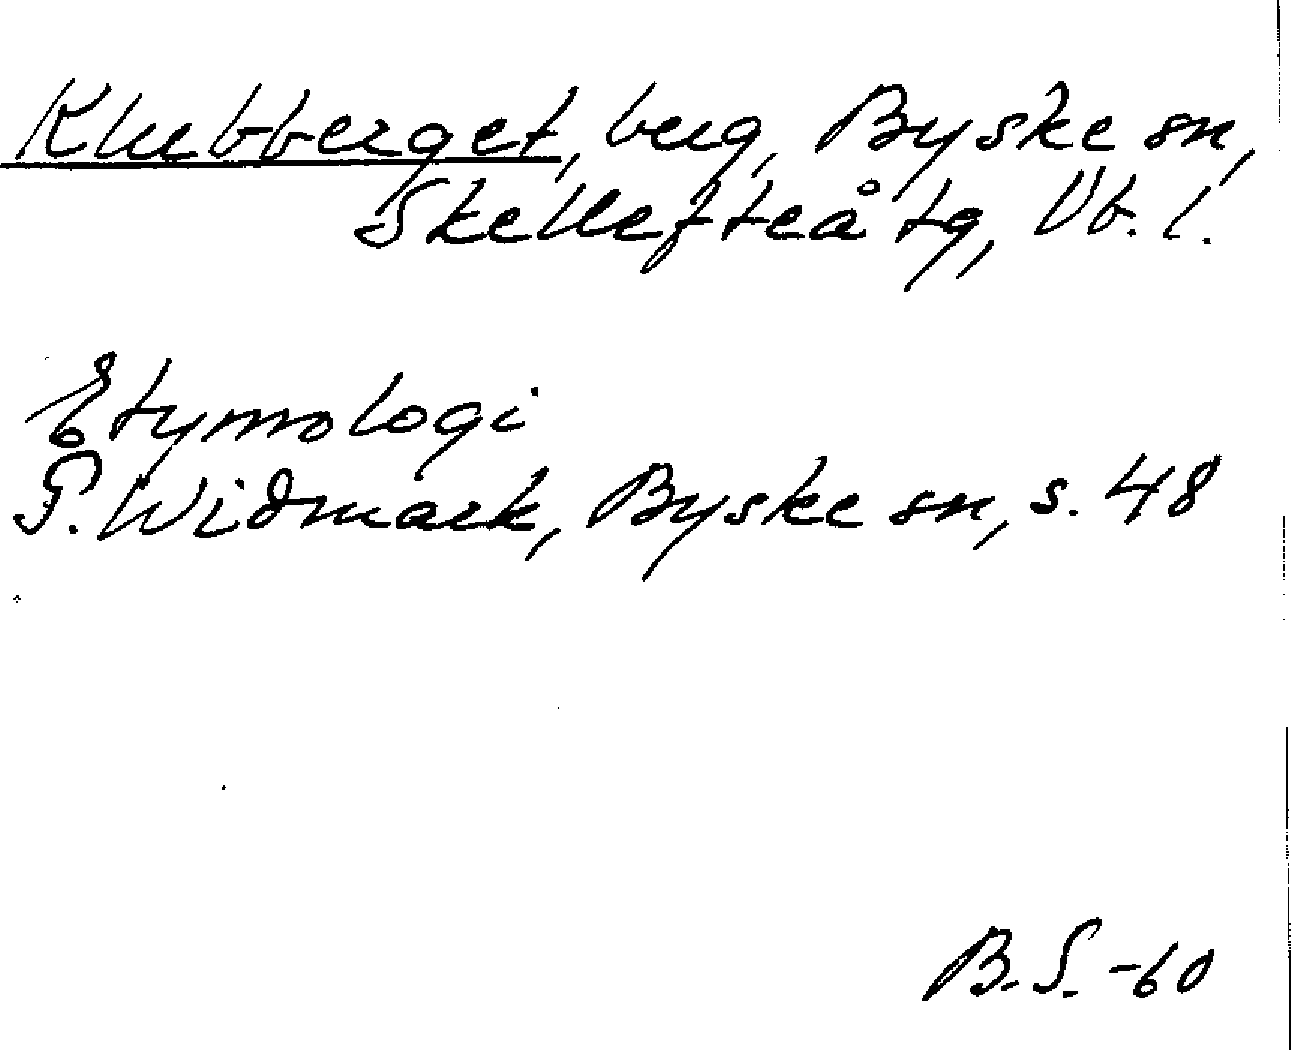 Klubbberget, berg, Byske sn,
Skellefteå tg, Vb. l.
Etymologi
P. Widmark, Byske sn, s. 48
B.S. -60